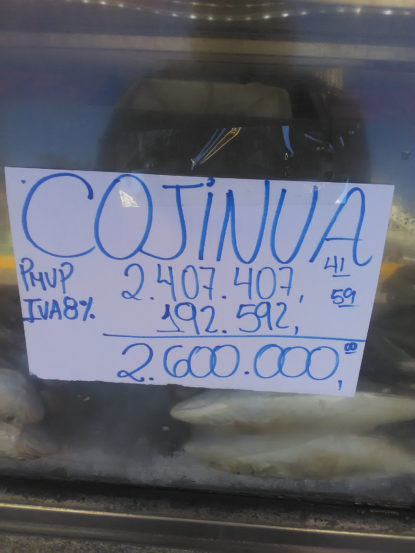 COJINUA
PMVP 2.407.407, 41
IVA8% 192.592, 59
2.600.000, 00